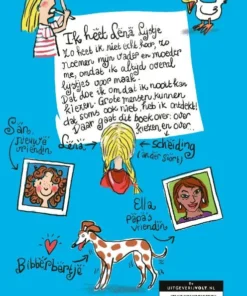 Ik heet Lena Lijstje
Zo heet ik niet echt hoor, zo
noemen mijn vader en moeder
me, omdat ik altijd overal
lijstjes van maak.
Dat doe ik omdat ik nooit kan
kiezen. Grote mensen kunnen
dat soms ook niet, heb ik ontdekt!
Daar gaat dit boek over: over
kiezen en over
scheiding
(ander soort)
Lena
vriendin
Ella
papa's
vriendin
Bibberbeertje
UITGEVERIJHOLT.NL